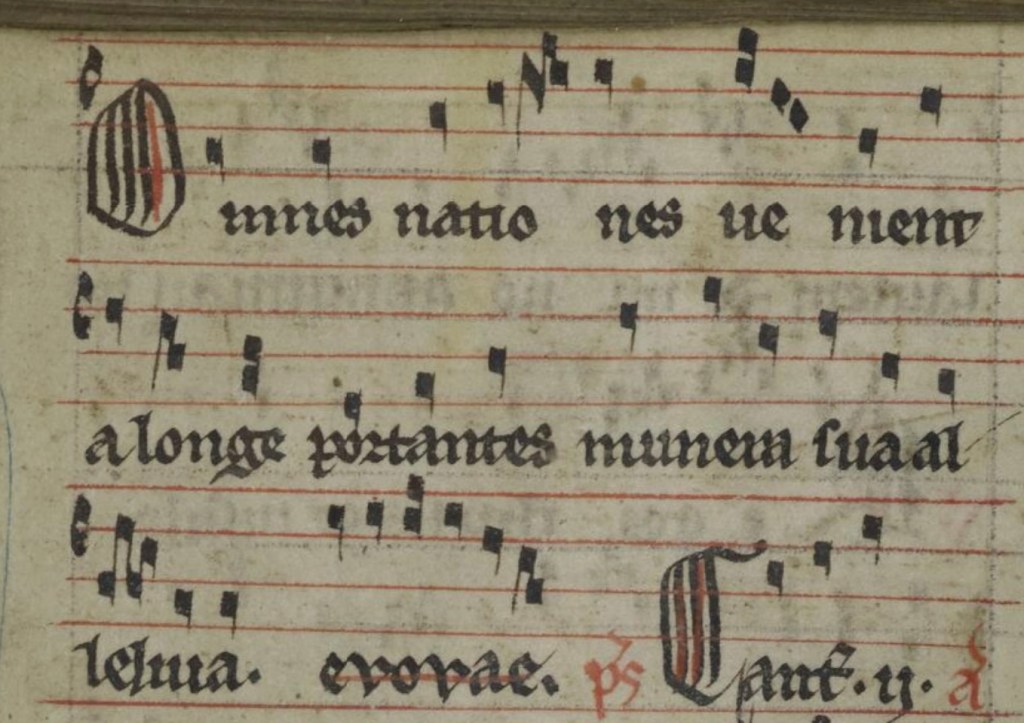 Omnes natio nes ue nient
a longe portantes munera sua al
leluia. evovae. ps Cant. ij. a